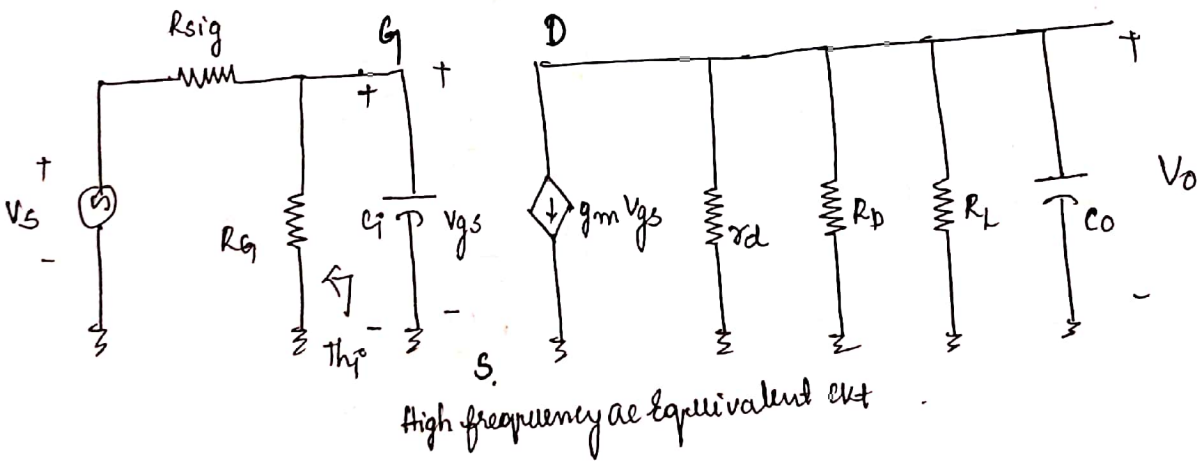 Rsig
G
D
+
+
+
+
Vs
-
RG
Ci
Vgs
gm Vgs
rd
RD
RL
Co
Vo
-
-
-
Thi
S.
High frequency ac Equivalent ckt .